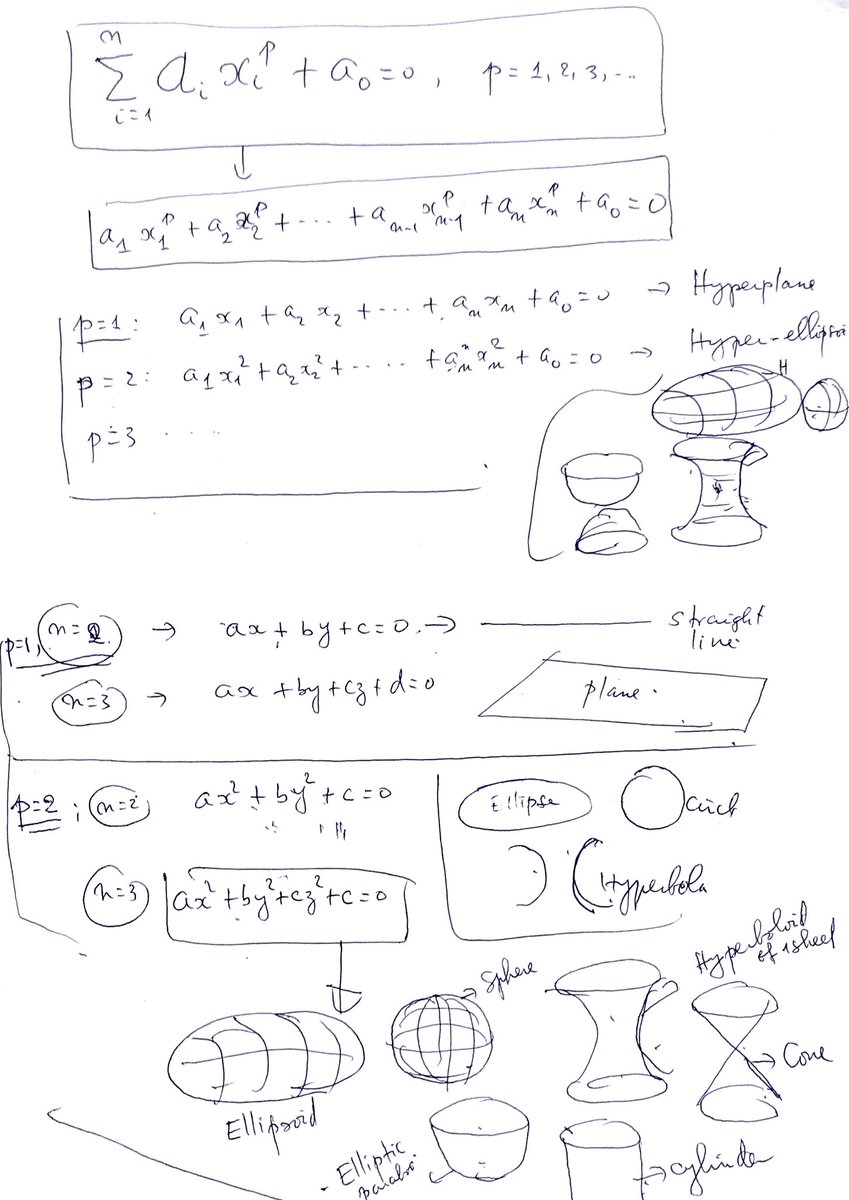 ∑_{i=1}^{n} a_i x_i^p + a_0 = 0 , p = 1, 2, 3, ...
a_1 x_1^p + a_2 x_2^p + ··· + a_{n-1} x_{n-1}^p + a_n x_n^p + a_0 = 0
p=1: a_1 x_1 + a_2 x_2 + ··· + a_n x_n + a_0 = 0 → Hyperplane
p=2: a_1 x_1^2 + a_2 x_2^2 + ···· + a_n x_n^2 + a_0 = 0 → Hyper-ellipsoi
H
p=3 ....
p=1, n=2 → ax + by + c = 0 → straight line
n=3 → ax + by + cz + d = 0 plane.
p=2 ; n=2 ax² + by² + c = 0 Ellipse
Hyperbola
n=3 ax² + by² + cz² + c = 0
Hyperboloid of 1 sheet
Sphere
Cone
Ellipsoid
Elliptic
cylinder